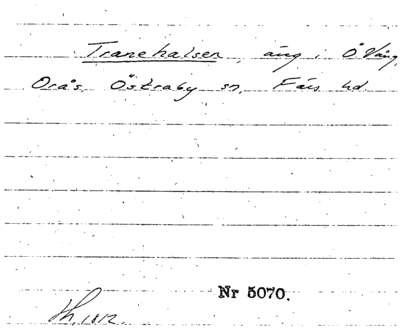 Tranehalsen, äng i Ö Vång,
Orås, Östraby sn, Färs hd.
Nr 5070.
1812.